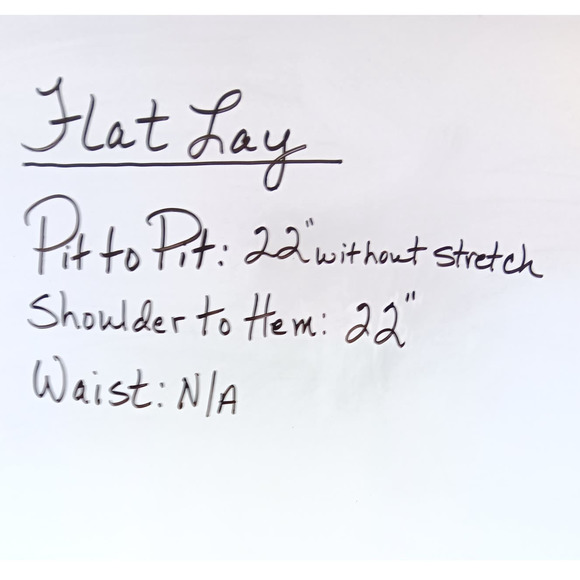 Flat Lay
Pit to Pit: 22" without stretch
Shoulder to Hem: 22"
Waist: N/A